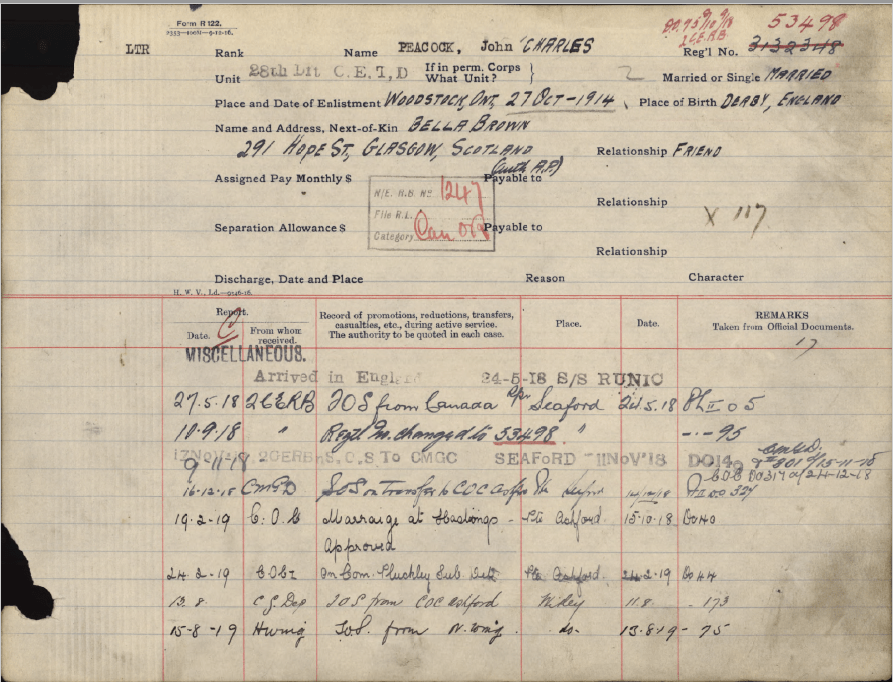 Form R 122.
D.O. 95 10/9/18
2 C.E.R.B.
53498
LTR Rank Name PEACOCK, John CHARLES Reg'l No. 3132348
Unit 28th Dft C.E.F, D If in perm. Corps What Unit? } Married or Single MARRIED
Place and Date of Enlistment WOODSTOCK, ONT, 27 OCT-1914 Place of Birth DERBY, ENGLAND
Name and Address, Next-of-Kin BELLA BROWN
291 HOPE ST, GLASGOW, SCOTLAND Relationship FRIEND
(auth A.P.)
Assigned Pay Monthly $ Payable to
N/E. R.B. No 1247
Relationship
File R.L.
X 117
Separation Allowance $ Payable to
Category Can OR
Relationship
Discharge, Date and Place Reason Character
H. W. V., Ld.
Report. Record of promotions, reductions, transfers, casualties, etc., during active service. The authority to be quoted in each case. Place. Date. REMARKS Taken from Official Documents.
Date. From whom received.
MISCELLANEOUS. 17
Arrived in England 24-5-18 S/S RUNIC
27.5.18 2CERB TOS from Canada Seaford 24.5.18 Pt II O 5
10.9.18 " Regtl No. changed to 53498 " -.- 95
17NOV'18 2CERB S.O.S TO CMGC SEAFORD -11NOV'18 DO149
9-11-18
16-12-18 CMGD SOS on Transfer to COC Ashford 14/12/18 Pt II DO 327
19-2-19 C.O.C Marraige at Hastings - Pte Ashford. 15-10-18 Do 40
Approved
24-2-19 On Com. Pluckley Sub Dett Pte Ashford. 24-2-19 Do 44
13.8 C.G. Dep TOS from COC Ashford Witley 11.8 - 173
15-8-19 Hwing T.O.S. from N. Wing. do. 13-8-19 - 75